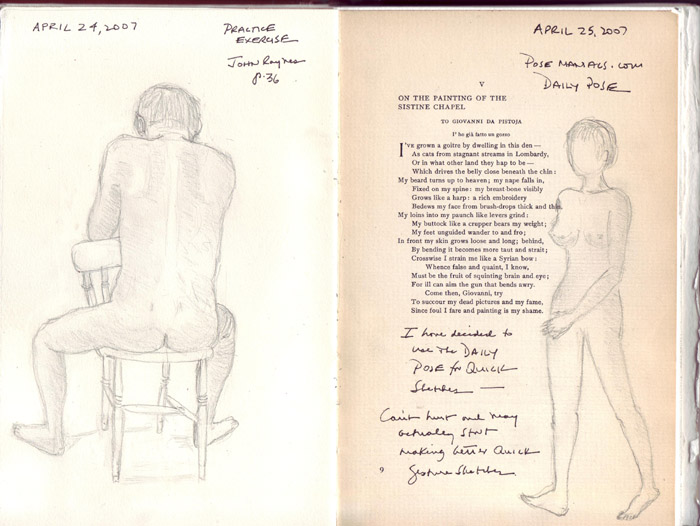 APRIL 24, 2007
PRACTICE
EXERCISE
JOHN Raynes
p. 36
APRIL 25, 2007
POSE MANIACS.COM
DAILY POSE
V
ON THE PAINTING OF THE
SISTINE CHAPEL
TO GIOVANNI DA PISTOJA
I' ho già fatto un gozzo
I'VE grown a goitre by dwelling in this den—
As cats from stagnant streams in Lombardy,
Or in what other land they hap to be—
Which drives the belly close beneath the chin:
My beard turns up to heaven; my nape falls in,
Fixed on my spine: my breast-bone visibly
Grows like a harp: a rich embroidery
Bedews my face from brush-drops thick and thin.
My loins into my paunch like levers grind:
My buttock like a crupper bears my weight;
My feet unguided wander to and fro;
In front my skin grows loose and long; behind,
By bending it becomes more taut and strait;
Crosswise I strain me like a Syrian bow:
Whence false and quaint, I know,
Must be the fruit of squinting brain and eye;
For ill can aim the gun that bends awry.
Come then, Giovanni, try
To succour my dead pictures and my fame,
Since foul I fare and painting is my shame.
I have decided to
use the DAILY
POSE for QUICK
Sketches —
Can't hurt and may
actually start
making better Quick
Gesture Sketches
9